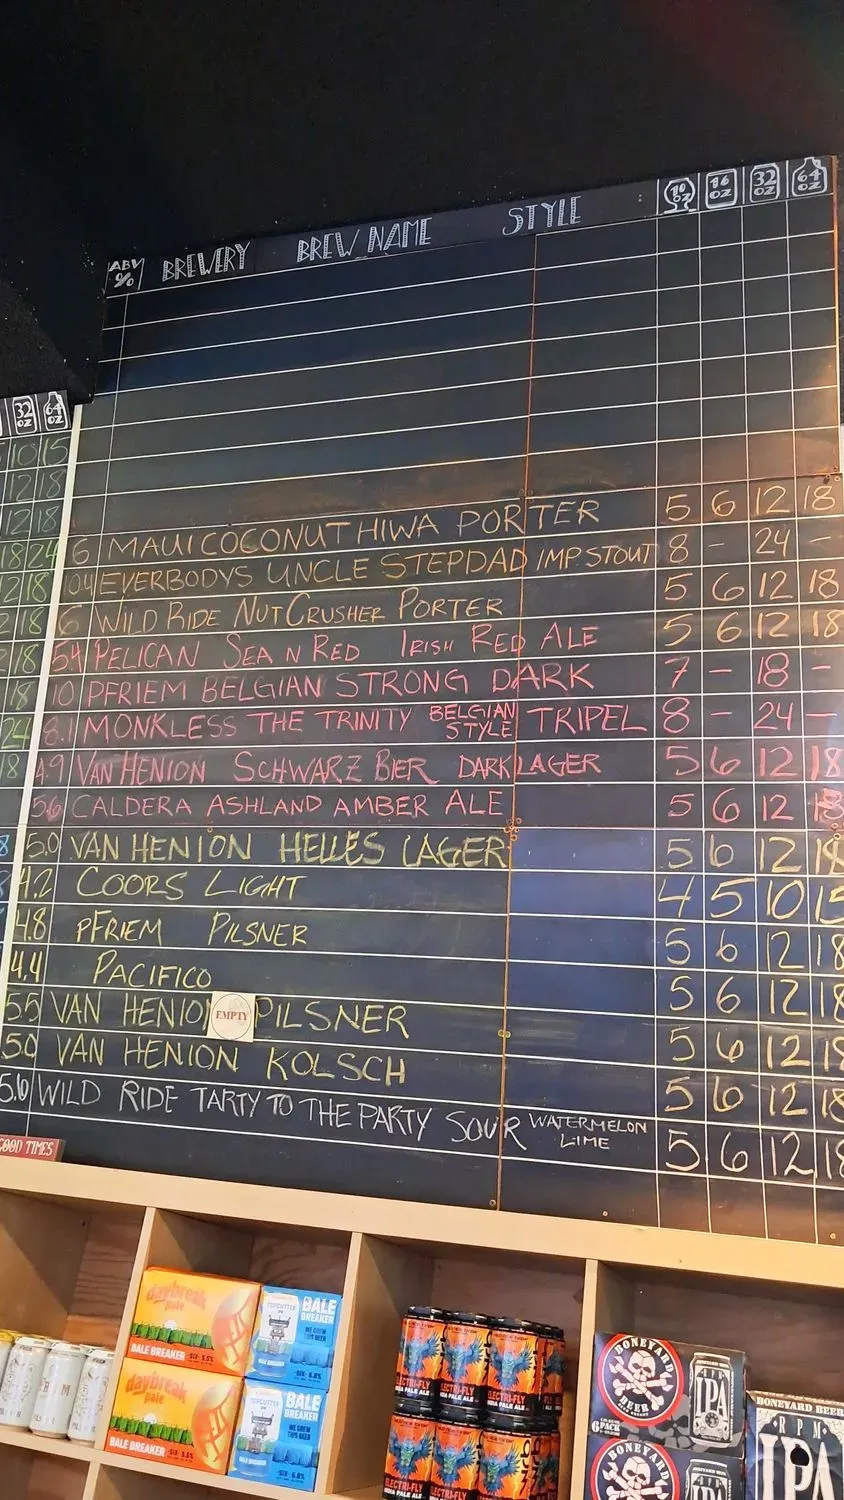 ABV % BREWERY BREW NAME STYLE 10 OZ 16 OZ 32 OZ 64 OZ
32 OZ 64 OZ
10 15
12 18
12 18
18 24
12 18
2 18
2 18
18
24
18
6 MAUI COCONUT HIWA PORTER 5 6 12 18
10.4 EVERBODYS UNCLE STEPDAD IMP. STOUT 8 - 24 -
6 WILD RIDE NUT CRUSHER PORTER 5 6 12 18
5.4 PELICAN SEA N RED IRISH RED ALE 5 6 12 18
10 PFRIEM BELGIAN STRONG DARK 7 - 18 -
8.1 MONKLESS THE TRINITY BELGIAN STYLE TRIPEL 8 - 24 -
4.9 VAN HENION SCHWARZ BIER DARK LAGER 5 6 12 18
5.6 CALDERA ASHLAND AMBER ALE 5 6 12 18
5.0 VAN HENION HELLES LAGER 5 6 12 18
4.2 COORS LIGHT 4 5 10 15
4.8 PFRIEM PILSNER 5 6 12 18
4.4 PACIFICO 5 6 12 18
5.5 VAN HENION EMPTY PILSNER 5 6 12 18
5.0 VAN HENION KOLSCH 5 6 12 18
5.0 WILD RIDE TARTY TO THE PARTY SOUR WATERMELON LIME 5 6 12 18
GOOD TIMES
daybreak pale
BALE BREAKER
TOPCUTTER IPA
BALE BREAKER
daybreak pale
BALE BREAKER
BALE BREAKER
ELECTRI-FLY
INDIA PALE ALE
ELECTRI-FLY
INDIA PALE ALE
BONEYARD BEER
6 PACK
IPA
BONEYARD
BONEYARD BEER
RPM
IPA